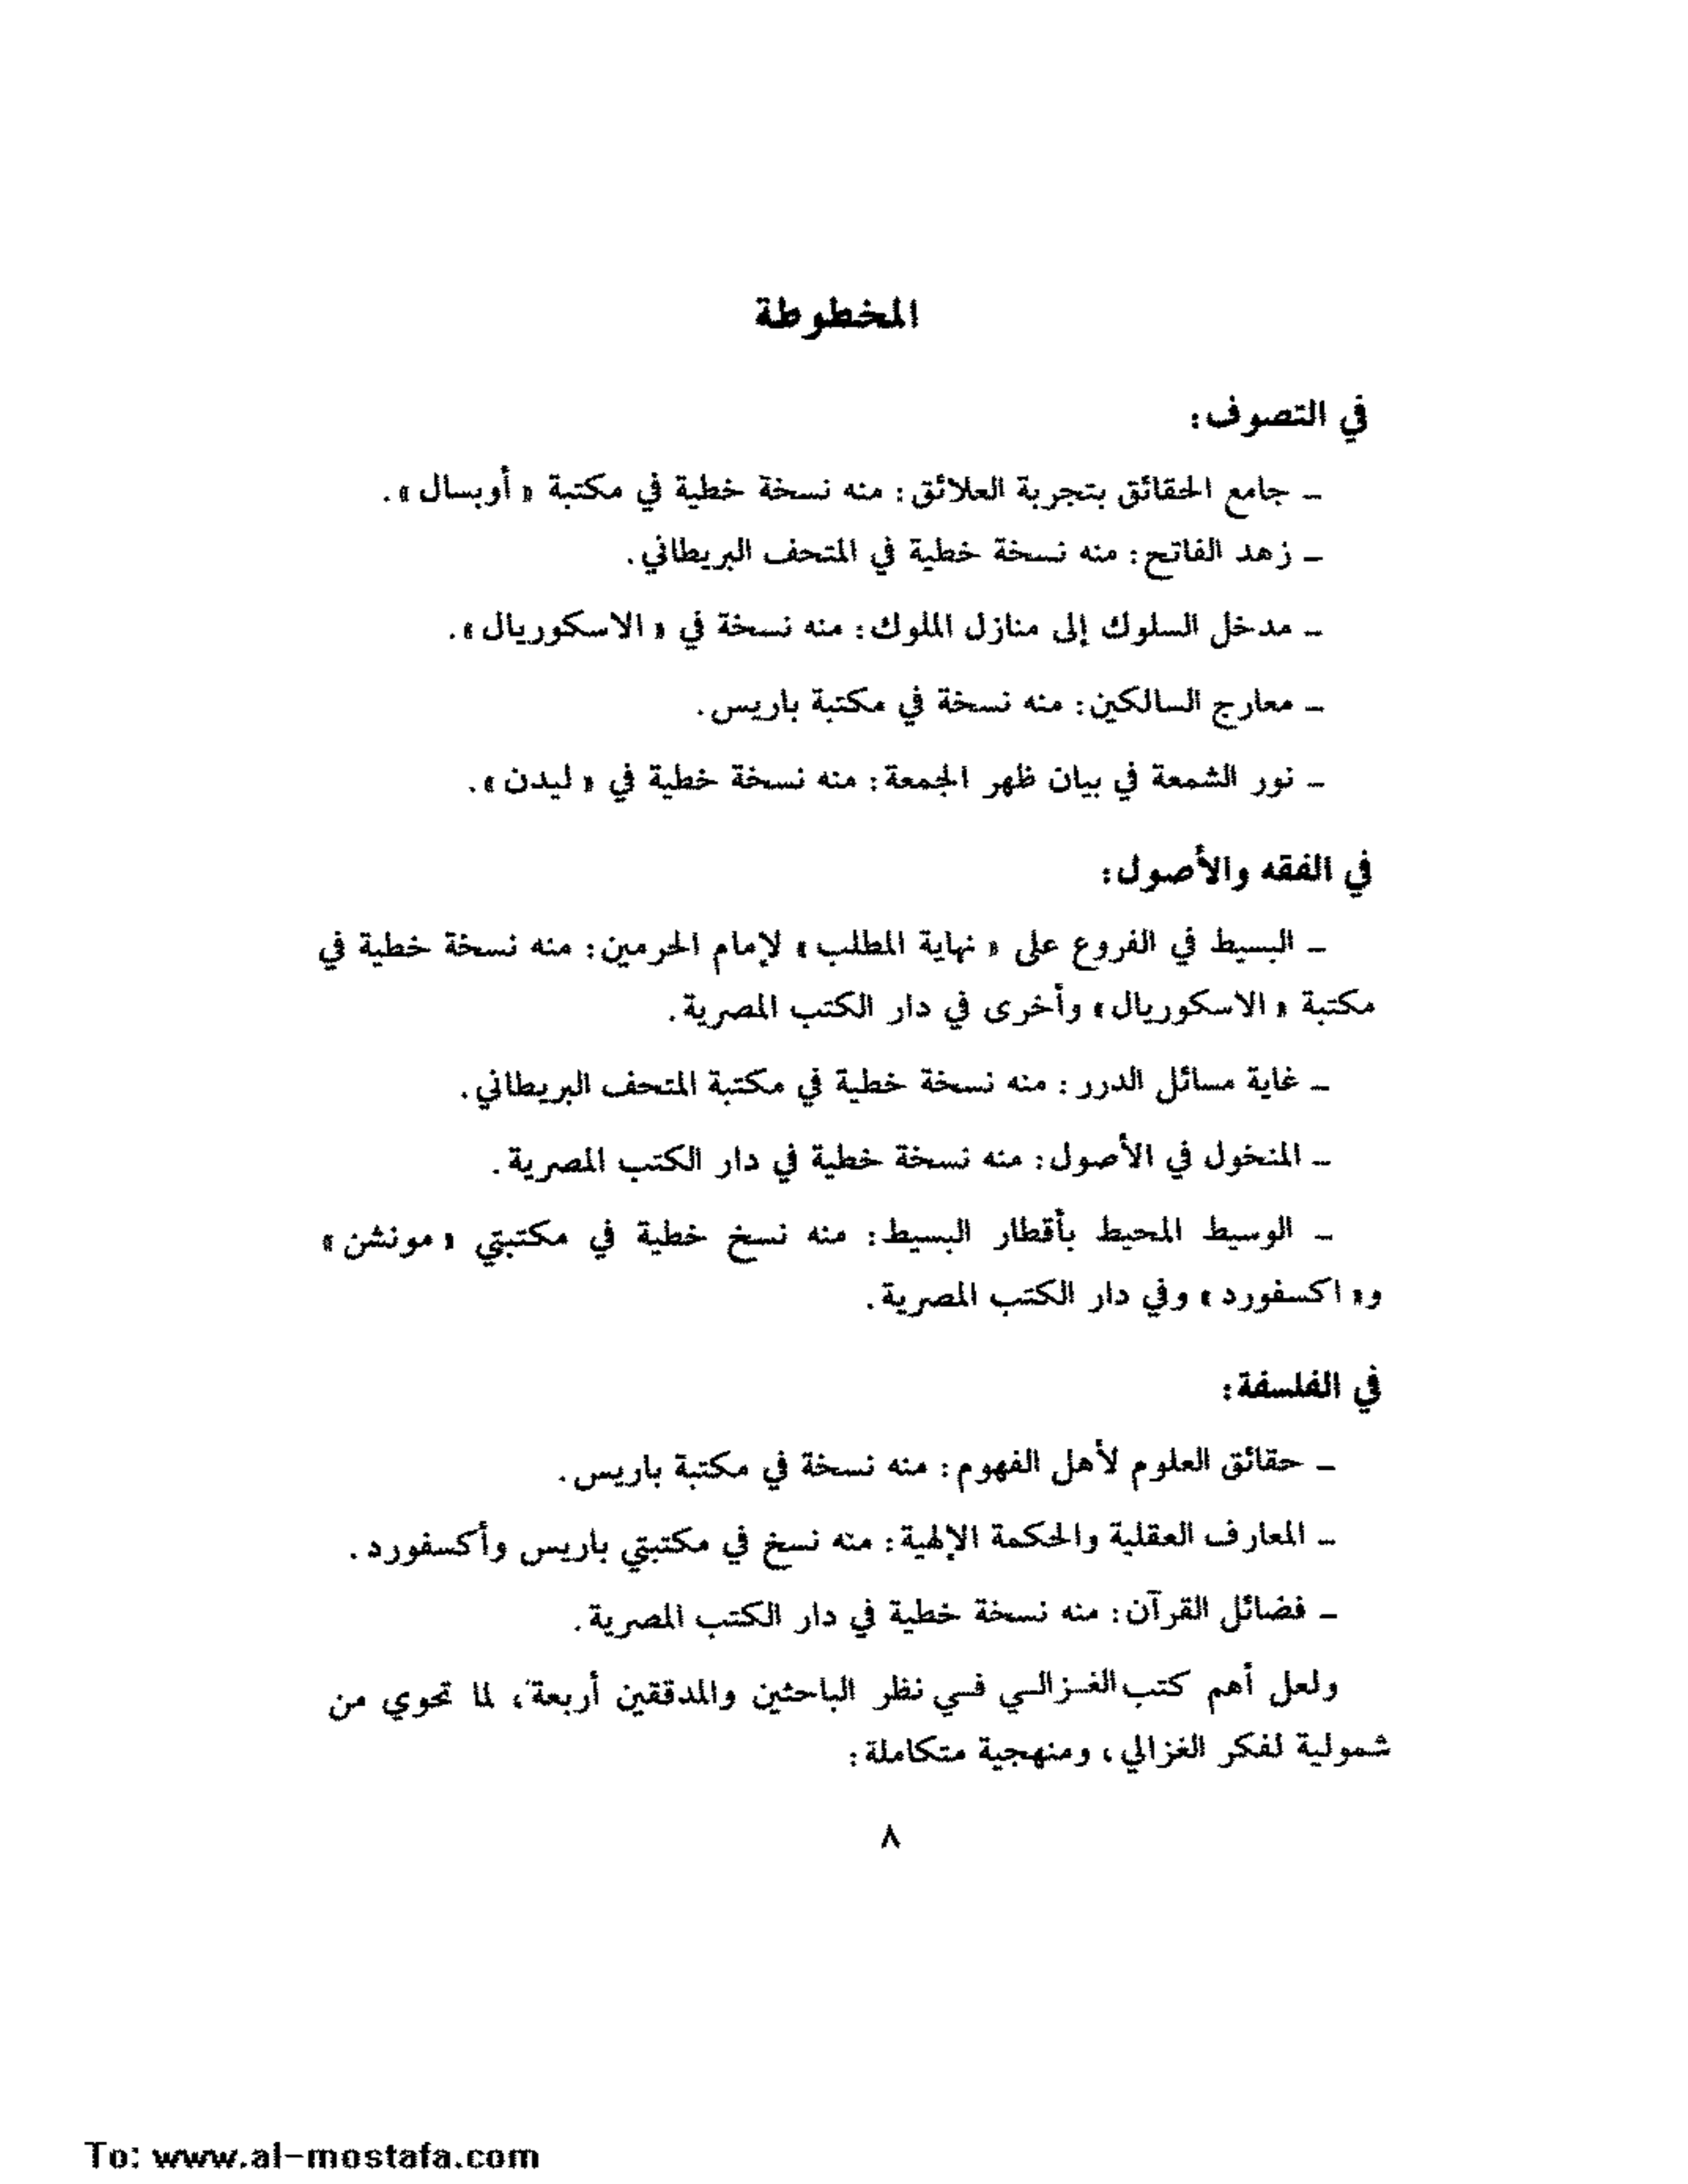 المخطوطة
في التصوف:
ــ جامع الحقائق بتجربة العلائق: منه نسخة خطية في مكتبة «أوبسال».
ــ زهد الفاتح: منه نسخة خطية في المتحف البريطاني.
ــ مدخل السلوك إلى منازل الملوك: منه نسخة في «الاسكوريال».
ــ معارج السالكين: منه نسخة في مكتبة باريس.
ــ نور الشمعة في بيان ظهر الجمعة: منه نسخة خطية في «ليدن».
في الفقه والأصول:
ــ البسيط في الفروع على «نهاية المطلب» لإمام الحرمين: منه نسخة خطية في
مكتبة «الاسكوريال» وأخرى في دار الكتب المصرية.
ــ غاية مسائل الدرر: منه نسخة خطية في مكتبة المتحف البريطاني.
ــ المنخول في الأصول: منه نسخة خطية في دار الكتب المصرية.
ــ الوسيط المحيط بأقطار البسيط: منه نسخ خطية في مكتبتي «مونشن»
و«اكسفورد» وفي دار الكتب المصرية.
في الفلسفة:
ــ حقائق العلوم لأهل الفهوم: منه نسخة في مكتبة باريس.
ــ المعارف العقلية والحكمة الإلهية: منه نسخ في مكتبتي باريس وأكسفورد.
ــ فضائل القرآن: منه نسخة خطية في دار الكتب المصرية.
ولعل أهم كتب الغزالي في نظر الباحثين والمدققين أربعة، لما تحوي من
شمولية لفكر الغزالي، ومنهجية متكاملة:
٨
To: www.al-mostafa.com